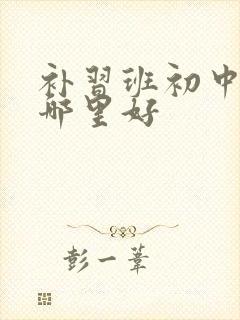 补習班初中
哪里好
彭一葦